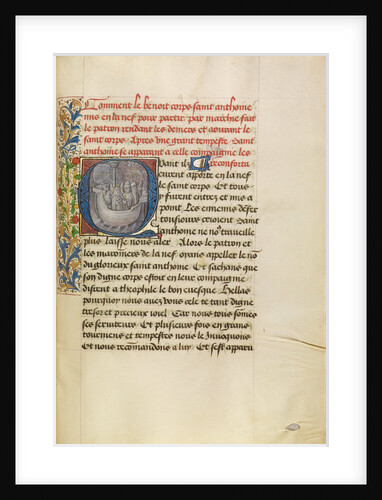 Comment le benoit corps saint anthoine
mis en la nef pour partir par
le patron rendant les deniers et
le saint corps. Apres une grant tempeste Saint
anthoine se apparut a celle compaignie les
Quant ilz reconforta
eurent apporte en la nef
le saint corps Et tous
y furent entrez et mis a
point Les ennemis d'efer
tousiours crioient Saint
anthoine ne nous travueille
plus laisse nous aler Alors le patron et
les maronniers de la nef oyans appeller le nom
du glorieux saint anthoine Et sachans que
son digne corps estoit en leur compaignie
disrent a theophile le bon evesque Hellas
pourquoy nous avez vous cele ce tant digne
tresor et precieux joiel Car nous tous sommes
ses serviteurs Et plusieurs fois en grans
tourmens et tempestes nous le Invoquons
Et nous recommandons a luy Et s'est apparu